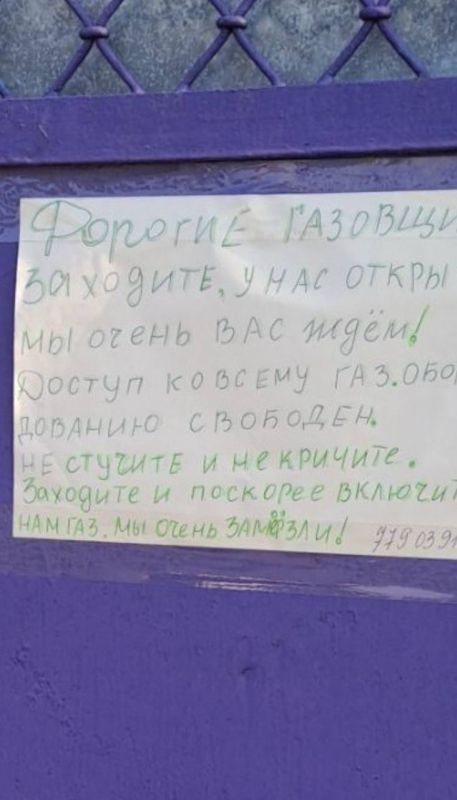 Дорогие ГАЗОВЩИ
ЗАХОДИТЕ, У НАС ОТКРЫ
МЫ ОЧЕНЬ ВАС ЖДЁМ!
ДОСТУП КО ВСЕМУ ГАЗ. ОБО
ДОВАНИЮ СВОБОДЕН.
НЕ СТУЧИТЕ И НЕ КРИЧИТЕ.
Заходите и поскорее включит
НАМ ГАЗ. МЫ ОЧЕНЬ ЗАМЁЗЛИ! 7790391